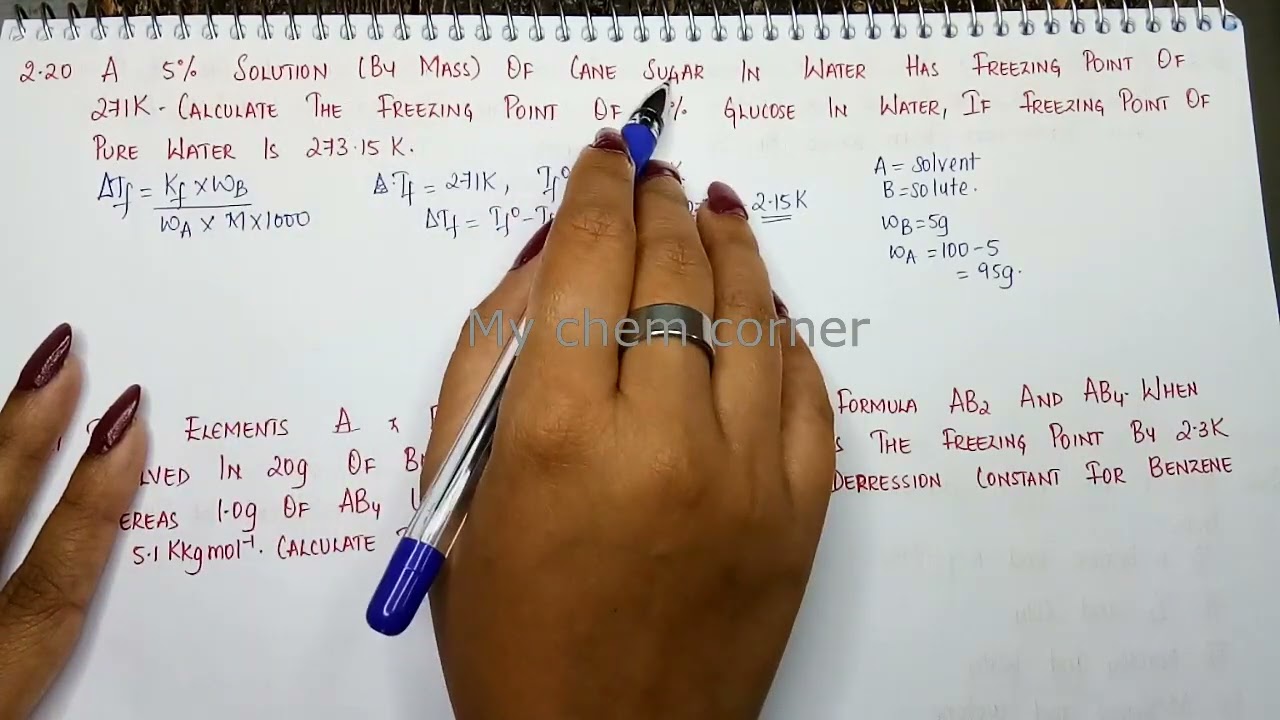 2.20 A 5% SOLUTION (BY MASS) OF CANE SUGAR IN WATER HAS FREEZING POINT OF
271K - CALCULATE THE FREEZING POINT OF % GLUCOSE IN WATER, IF FREEZING POINT OF
PURE WATER IS 273.15 K.
ΔTf = Kf × WB
WA × M × 1000
Δ·Tf = 271K, Tf°
ΔTf = Tf° - 2.15K
A = solvent
B = solute.
WB = 5g
WA = 100 - 5
= 95g.
My chem corner
ELEMENTS A FORMULA AB2 AND AB4. WHEN
LVED IN 20g OF THE FREEZING POINT BY 2.3K
EREAS 1.0g OF AB4 DERRESSION CONSTANT FOR BENZENE
5.1 KKgmol⁻¹. CALCULATE